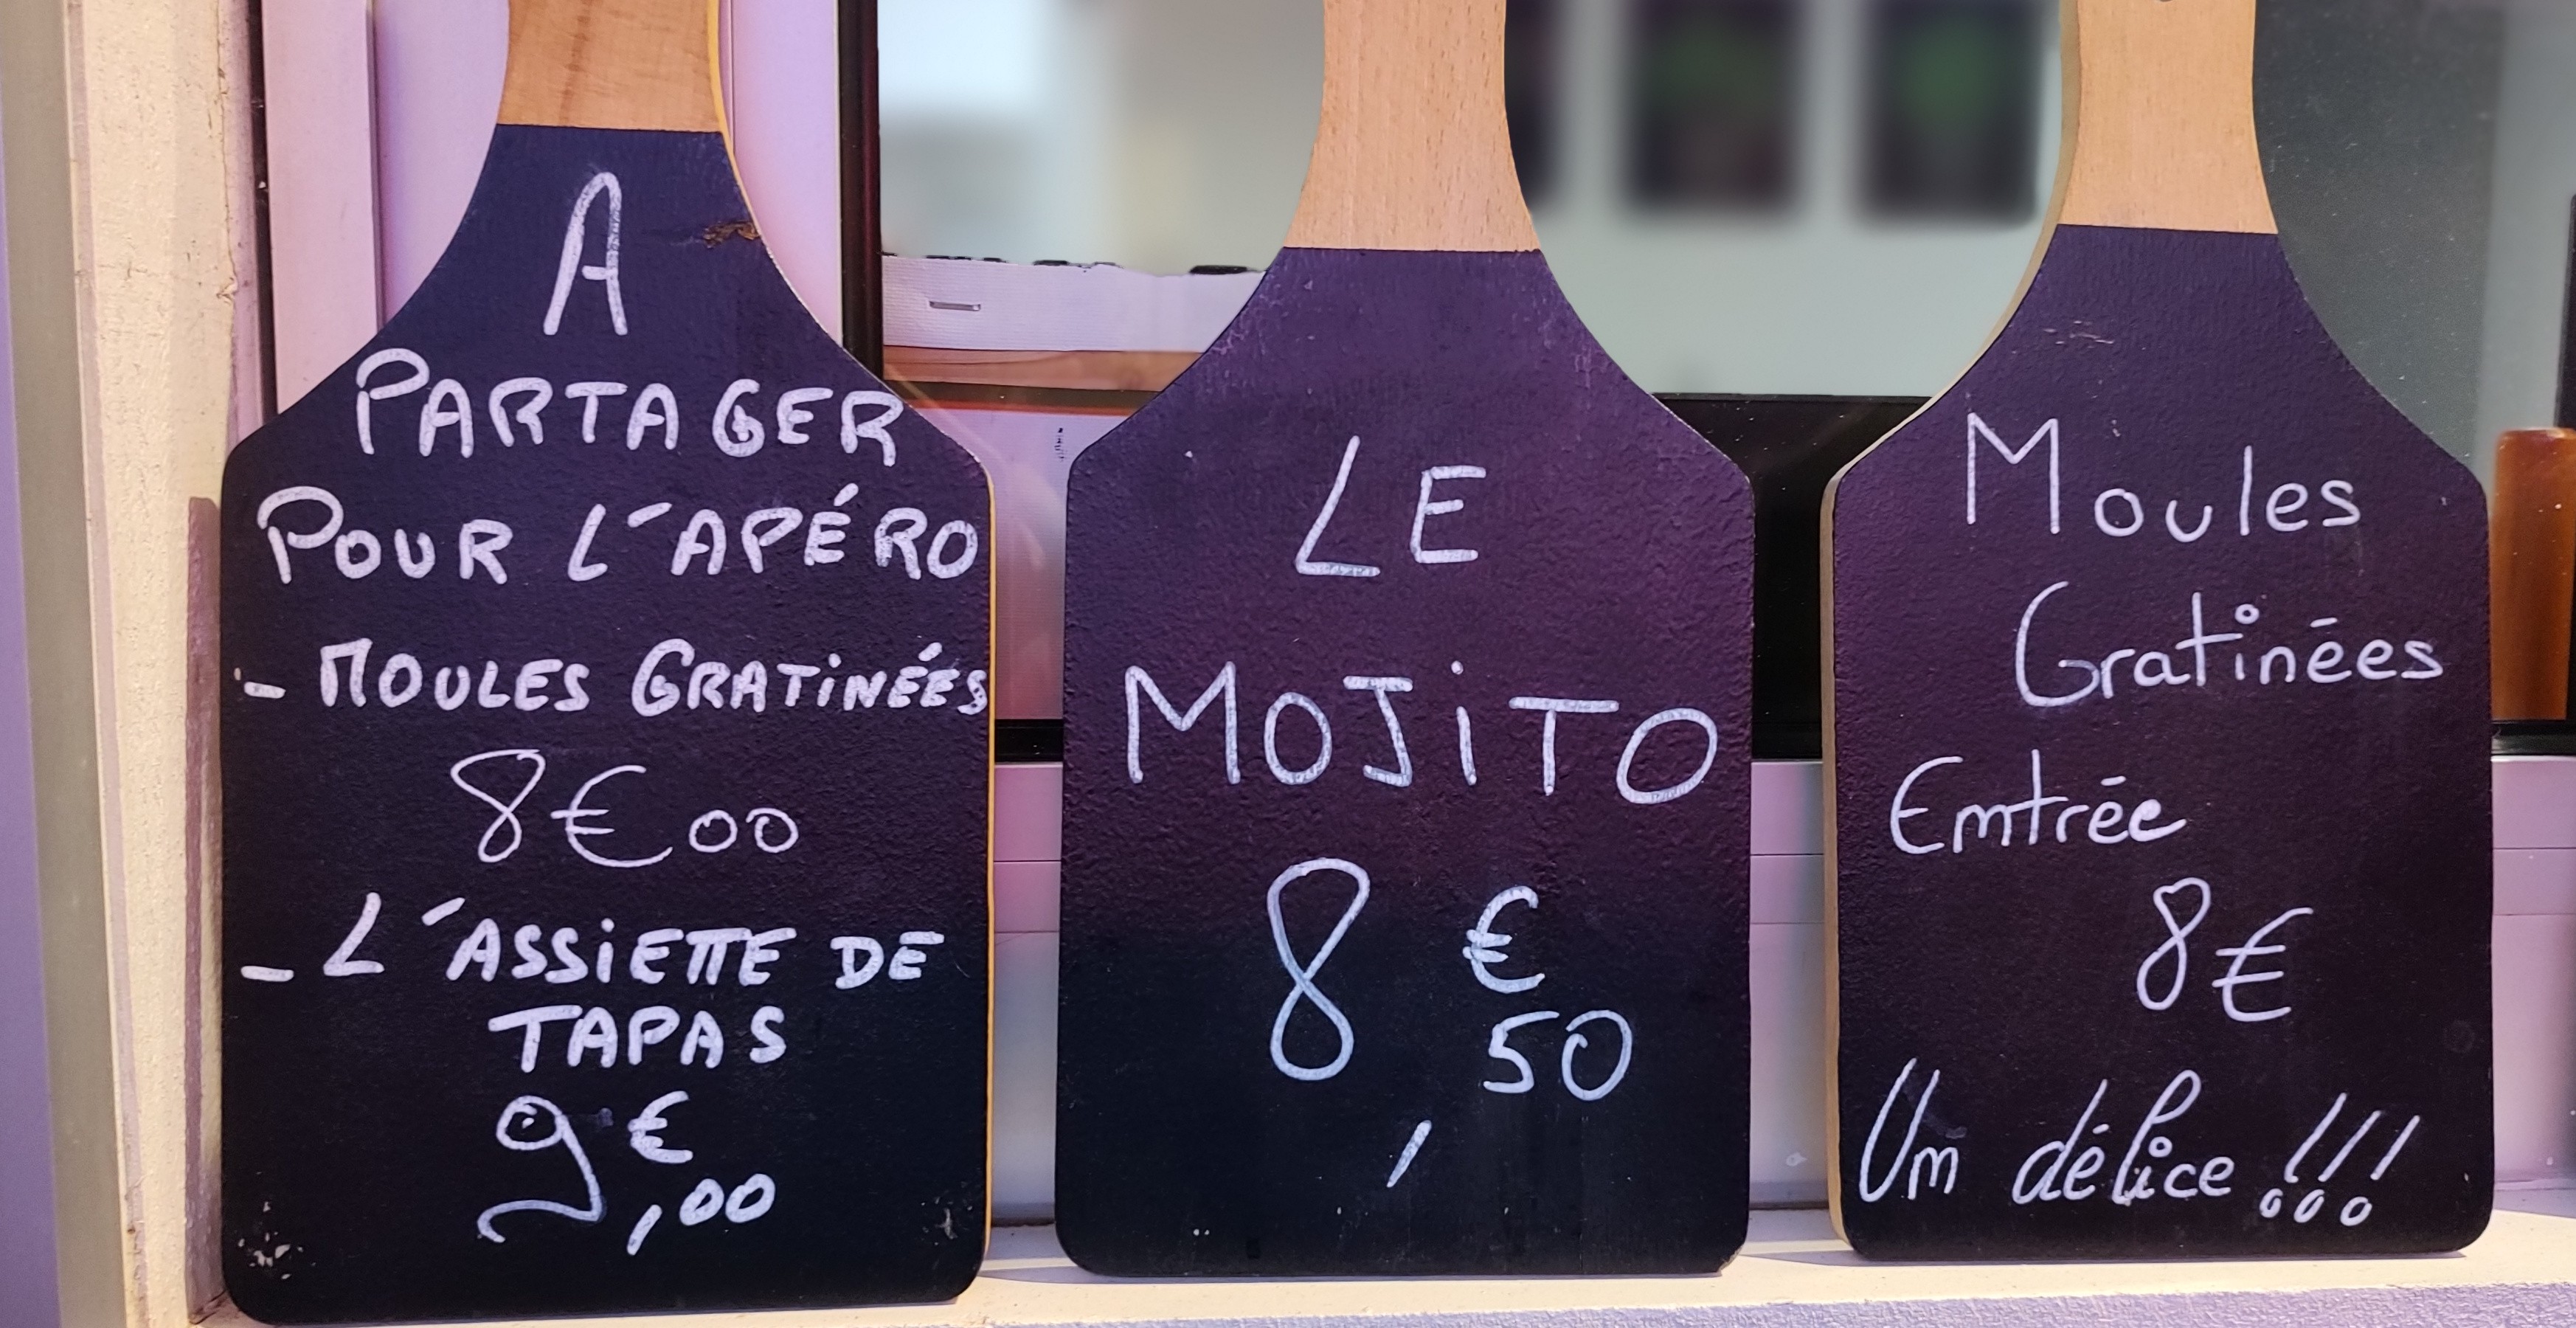 A
PARTAGER
POUR L'APÉRO
- MOULES GRATiNÉES
8€00
- L'ASSiETTE DE
TAPAS
9€,00
LE
MOJiTO
8€50
Moules
Gratinées
Entrée
8€
Un délice !!!